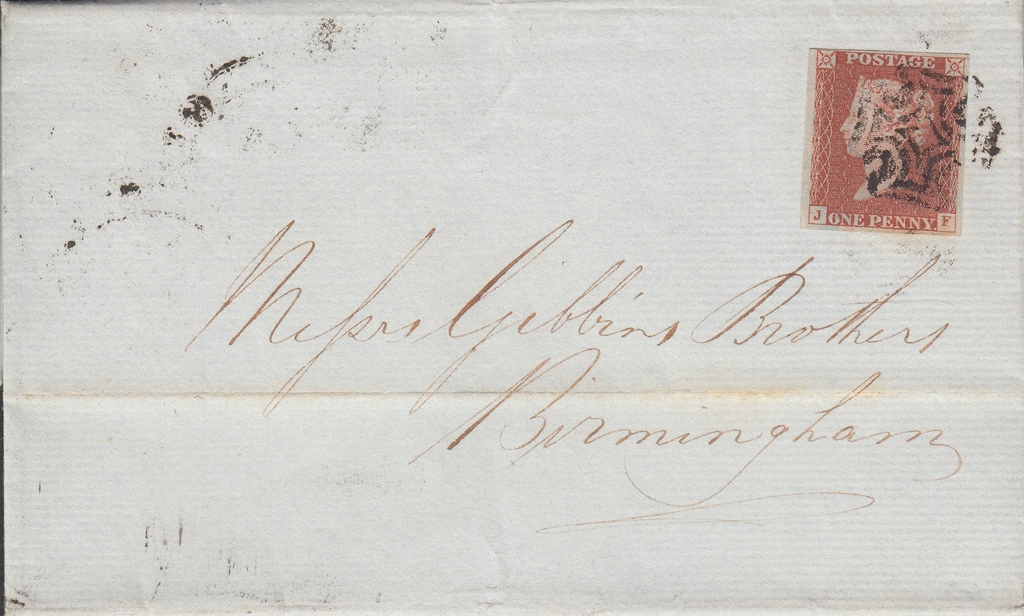 POSTAGE
J ONE PENNY F
Messrs Gibbins Brothers
Birmingham